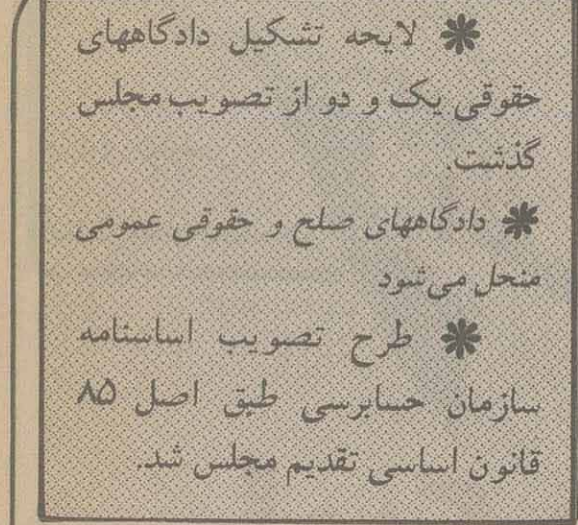 ❋ لایحه تشکیل دادگاههای
حقوقی یک و دو از تصویب مجلس
گذشت.
❋ دادگاههای صلح و حقوقی عمومی
منحل می‌شود
❋ طرح تصویب اساسنامه
سازمان حسابرسی طبق اصل ۸۵
قانون اساسی تقدیم مجلس شد.